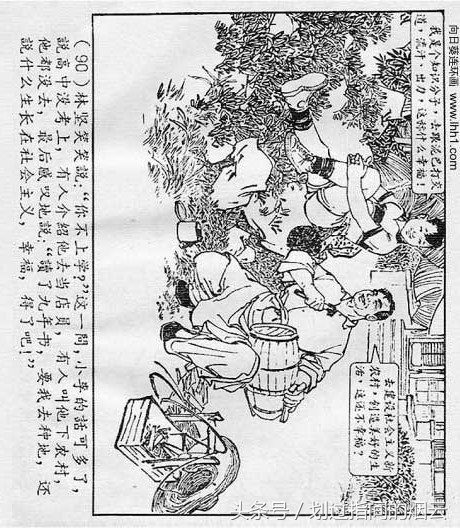 向日葵连环画 www.lhh1.com
我是个知识分子，去跟泥巴打交
道，流汗，出力，这称什么幸福！
去建設社会主义新
农村，創造美好的生
活，这还不幸福？
（90）林坚笑笑說：“你不上学？”这一問，小李的話可多了，
說高中没考上，有人介紹他去当店員，有人叫他下农村，
他都没去，最后感叹地說：“讀了九年书，要我去种地，还
說什么生长在社会主义，幸福，得了吧！”
头条号 / 划过指间的烟云